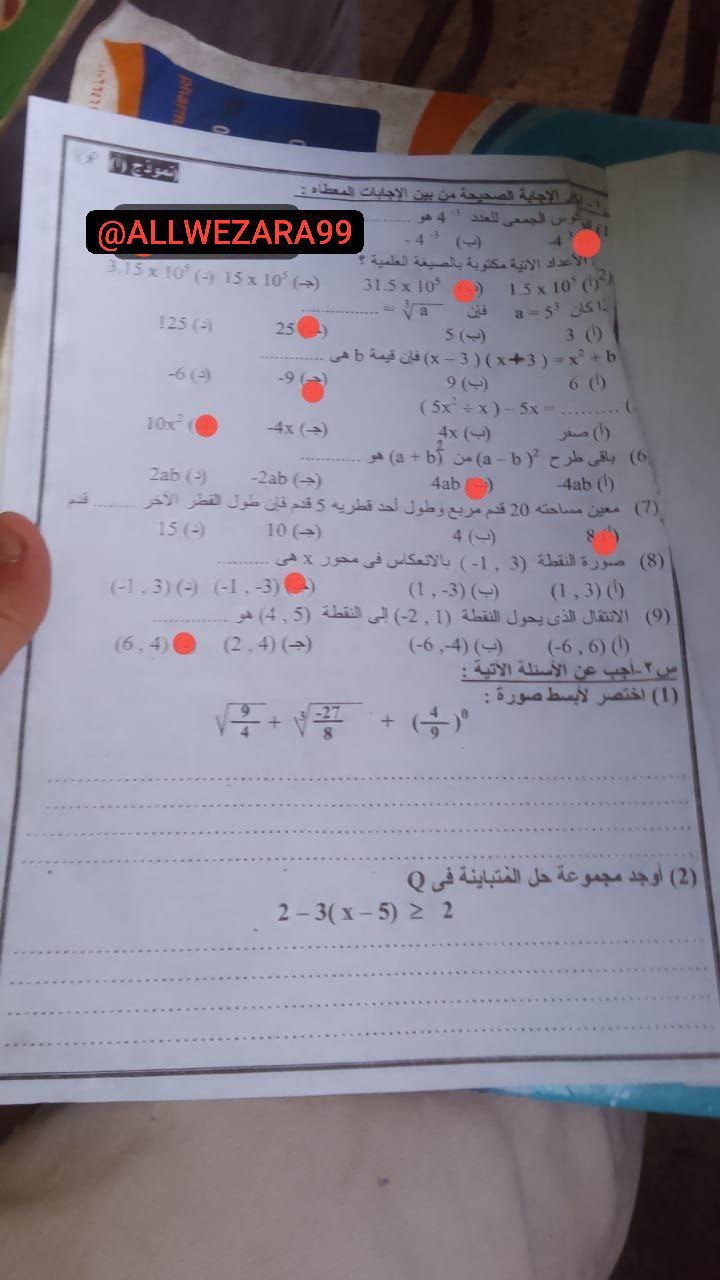 pharm
نموذج (أ)
الإجابة الصحيحة من بين الإجابات المعطاه :
@ALLWEZARA99
الجمعى للعدد 4⁻³ هو ............
(ب) -4⁻³
الأعداد الآتية مكتوبة بالصيغة العلمية ؟
(2
(أ) 1.5 x 10⁵ 31.5 x 10⁵ (جـ) 15 x 10⁵ (د) 3.15 x 10⁵
كان a = 5³ فإن ∛a = ............
(أ) 3 (ب) 5 25 (د) 125
(x – 3) (x + 3) = x² + b فإن قيمة b هى ............
(أ) 6 (ب) 9 (جـ) -9 (د) -6
(5x² ÷ x) – 5x = .........
(أ) صفر (ب) 4x (جـ) -4x 10x²
6) باقى طرح (a – b)² من (a + b)² هو ............
(أ) -4ab 4ab (جـ) -2ab (د) 2ab
(7) معين مساحته 20 قدم مربع وطول أحد قطريه 5 قدم فإن طول القطر الآخر ......... قدم
(أ) 8 (ب) 4 (جـ) 10 (د) 15
(8) صورة النقطة (-1 , 3) بالانعكاس فى محور x هى ..........
(أ) (1 , 3) (ب) (1 , -3) (-1 , -3) (د) (-1 , 3)
(9) الانتقال الذى يحول النقطة (-2 , 1) إلى النقطة (4 , 5) هو ..............
(أ) (-6 , 6) (ب) (-6 ,-4) (جـ) (2 , 4) (6 , 4)
س٢-أجب عن الأسئلة الآتية :
(1) اختصر لأبسط صورة :
√(9/4) + ∛(-27/8) + (4/9)⁰
(2) أوجد مجموعة حل المتباينة فى Q
2 – 3( x – 5) ≥ 2